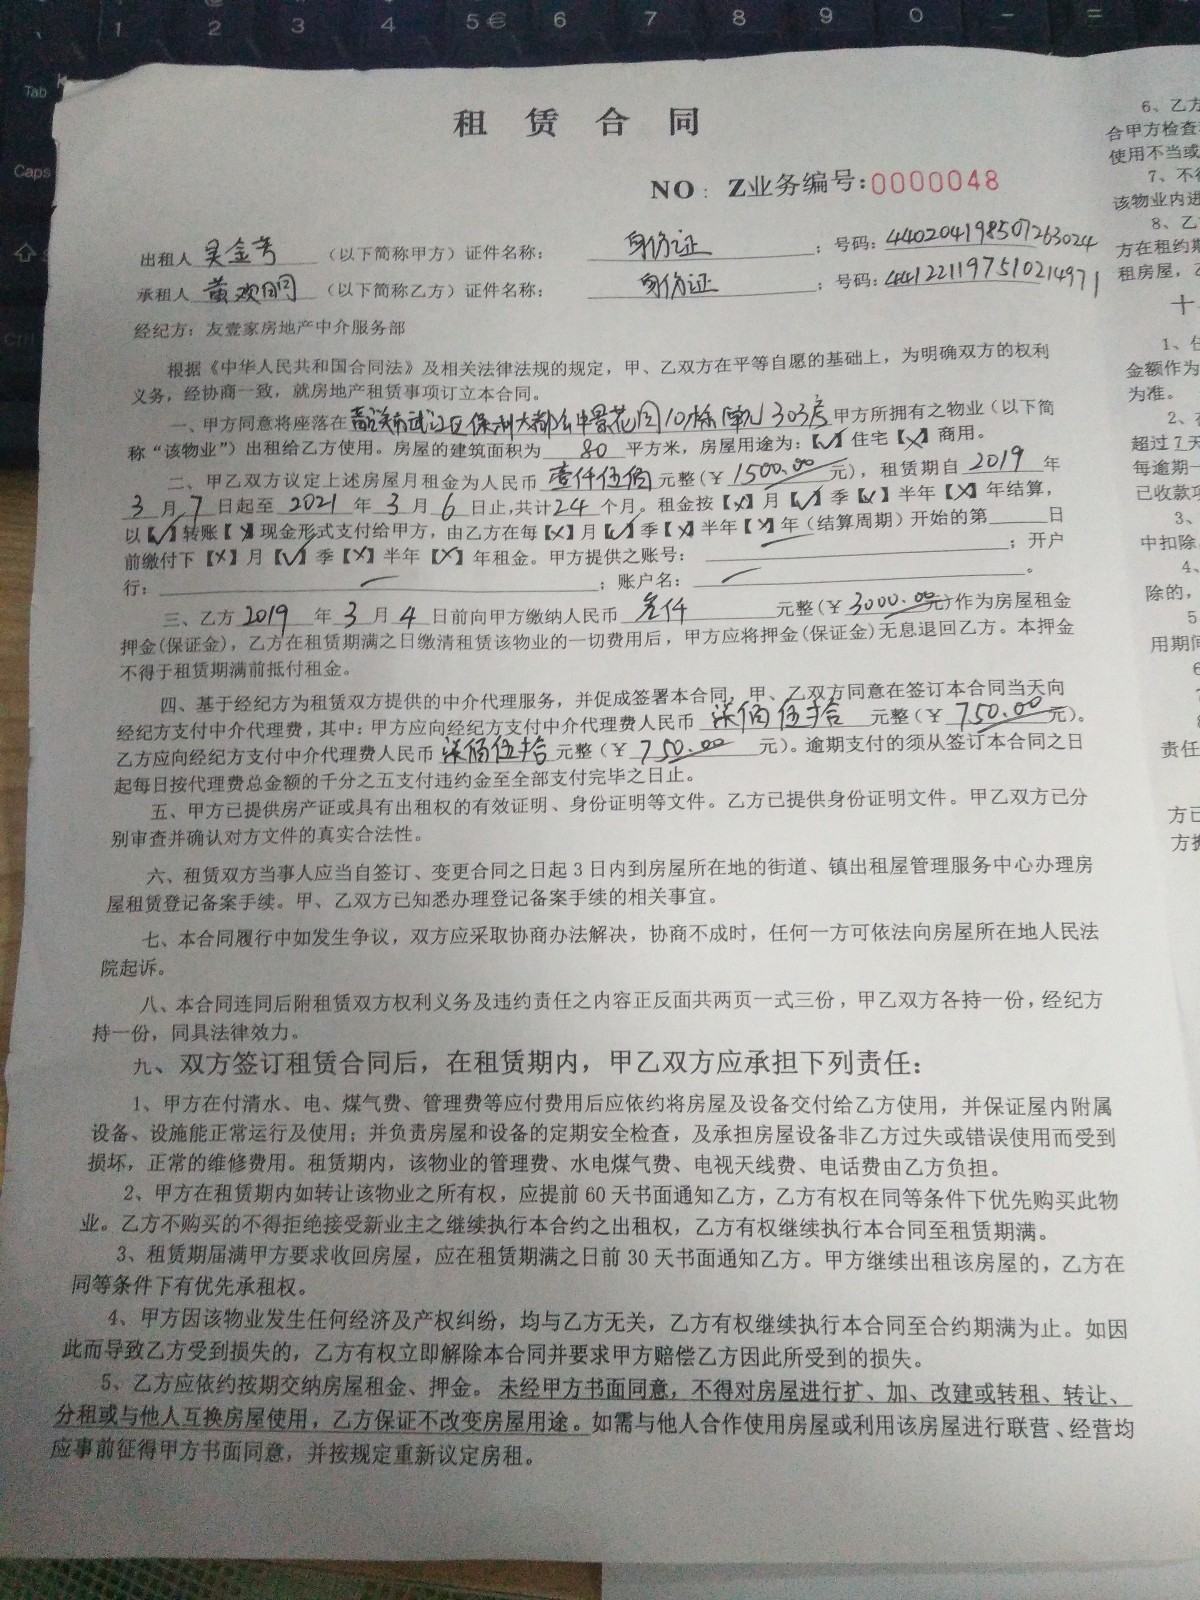 Tab
Caps
1 2 3 4 5 € 6 7 8 9 0 - =
租赁合同
NO：Z业务编号:0000048
出租人 吴金 （以下简称甲方）证件名称： 身份证 ；号码: 440204198507263024
承租人 黄欢明 （以下简称乙方）证件名称： 身份证 ；号码: 441221197510214971
经纪方：友壹家房地产中介服务部
根据《中华人民共和国合同法》及相关法律法规的规定，甲、乙双方在平等自愿的基础上，为明确双方的权利
义务，经协商一致，就房地产租赁事项订立本合同。
一、甲方同意将座落在 韶关市武江区保利大都会中景花园10栋 303房 甲方所拥有之物业（以下简
称“该物业”）出租给乙方使用。房屋的建筑面积为 80 平方米，房屋用途为：【√】住宅【X】商用。
二、甲乙双方议定上述房屋月租金为人民币 壹仟伍佰 元整(￥ 1500.00 元)，租赁期自 2019 年
3 月 7 日起至 2021 年 3 月 6 日止,共计 24 个月。租金按【X】月【√】季【X】半年【X】年结算，
以【√】转账【X】现金形式支付给甲方，由乙方在每【X】月【√】季【X】半年【X】年（结算周期）开始的第____日
前缴付下【X】月【√】季【X】半年【X】年租金。甲方提供之账号：____；开户
行：____；账户名：____。
三、乙方 2019 年 3 月 4 日前向甲方缴纳人民币 叁仟 元整(￥ 3000.00 元)作为房屋租金
押金(保证金)，乙方在租赁期满之日缴清租赁该物业的一切费用后，甲方应将押金(保证金)无息退回乙方。本押金
不得于租赁期满前抵付租金。
四、基于经纪方为租赁双方提供的中介代理服务，并促成签署本合同，甲、乙双方同意在签订本合同当天向
经纪方支付中介代理费，其中：甲方应向经纪方支付中介代理费人民币 柒佰伍拾 元整（￥ 750.00 元）。
乙方应向经纪方支付中介代理费人民币 柒佰伍拾 元整（￥ 750.00 元）。逾期支付的须从签订本合同之日
起每日按代理费总金额的千分之五支付违约金至全部支付完毕之日止。
五、甲方已提供房产证或具有出租权的有效证明、身份证明等文件。乙方已提供身份证明文件。甲乙双方已分
别审查并确认对方文件的真实合法性。
六、租赁双方当事人应当自签订、变更合同之日起 3 日内到房屋所在地的街道、镇出租屋管理服务中心办理房
屋租赁登记备案手续。甲、乙双方已知悉办理登记备案手续的相关事宜。
七、本合同履行中如发生争议，双方应采取协商办法解决，协商不成时，任何一方可依法向房屋所在地人民法
院起诉。
八、本合同连同后附租赁双方权利义务及违约责任之内容正反面共两页一式三份，甲乙双方各持一份，经纪方
持一份，同具法律效力。
九、双方签订租赁合同后，在租赁期内，甲乙双方应承担下列责任：
1、甲方在付清水、电、煤气费、管理费等应付费用后应依约将房屋及设备交付给乙方使用，并保证屋内附属
设备、设施能正常运行及使用；并负责房屋和设备的定期安全检查，及承担房屋设备非乙方过失或错误使用而受到
损坏，正常的维修费用。租赁期内，该物业的管理费、水电煤气费、电视天线费、电话费由乙方负担。
2、甲方在租赁期内如转让该物业之所有权，应提前 60 天书面通知乙方，乙方有权在同等条件下优先购买此物
业。乙方不购买的不得拒绝接受新业主之继续执行本合约之出租权，乙方有权继续执行本合同至租赁期满。
3、租赁期届满甲方要求收回房屋，应在租赁期满之日前 30 天书面通知乙方。甲方继续出租该房屋的，乙方在
同等条件下有优先承租权。
4、甲方因该物业发生任何经济及产权纠纷，均与乙方无关，乙方有权继续执行本合同至合约期满为止。如因
此而导致乙方受到损失的，乙方有权立即解除本合同并要求甲方赔偿乙方因此所受到的损失。
5、乙方应依约按期交纳房屋租金、押金。未经甲方书面同意，不得对房屋进行扩、加、改建或转租、转让、
分租或与他人互换房屋使用，乙方保证不改变房屋用途。如需与他人合作使用房屋或利用该房屋进行联营、经营均
应事前征得甲方书面同意，并按规定重新议定房租。
6、乙方
合甲方检查
使用不当或
7、不得
该物业内进
8、乙
方在租约期
租房屋，乙
十
1、住
金额作为
为准。
2、在
超过 7 天
每逾期一
已收款项
3、
中扣除
4、
除的，
5
用期间
6
8
责任
方已
方